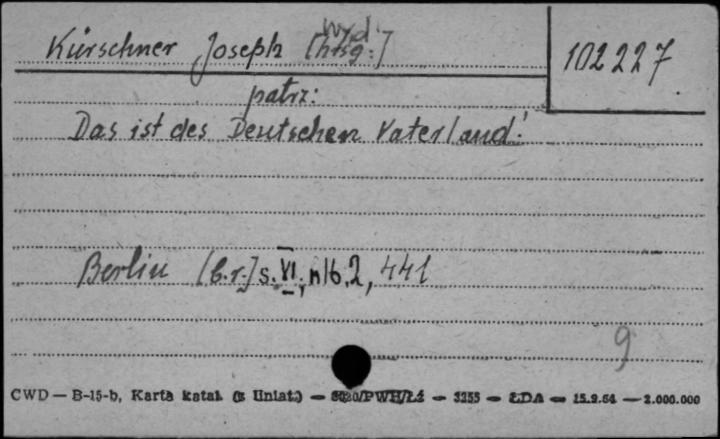 wyd.
Kürschner Joseph [hrsg:]
102227
patrz:
Das ist des Deutschen Vaterland!
Berlin [b.r.] s. VI, nlb, 2, 441
9
CWD — B-15-b, Karta katal. (z Uniat.) — /PWH/Łź — 3255 — ŁDA — 15.9.64 — 2.000.000